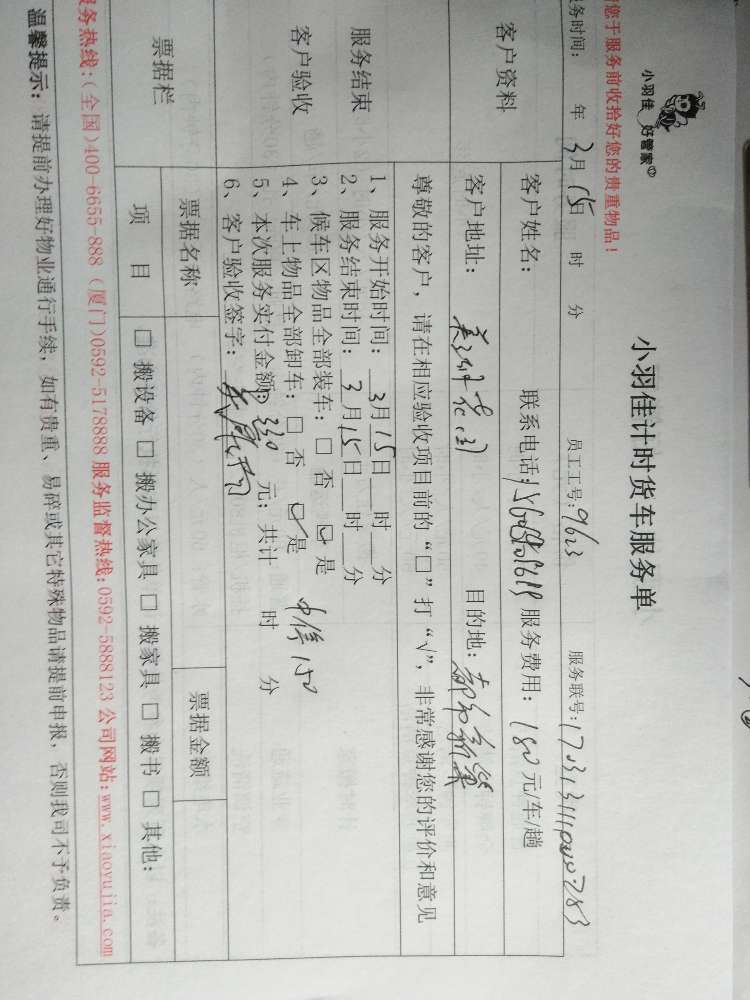 小羽佳 好管家
小羽佳计时货车服务单
您于服务前收拾好您的贵重物品！
务时间： 年 3月 15日 时 分 员工工号：9623 服务联号：
客户资料
客户姓名： 联系电话： 服务费用：180元/车/趟
客户地址： 目的地：
服务结束
客户验收
尊敬的客户，请在相应验收项目前的“□”打“√”，非常感谢您的评价和意见
1、服务开始时间：3月15日 时 分
2、服务结束时间：3月15日 时 分
3、候车区物品全部装车：□ 否 ☑ 是
4、车上物品全部卸车：□ 否 ☑ 是 中停150
5、本次服务实付金额：330 元；共计 时 分
6、客户验收签字：
票据栏
票据名称 票据金额
项 目 □ 搬设备 □ 搬办公家具 □ 搬家具 □ 搬书 □ 其他：
务热线：(全国)400-6655-888 (厦门)0592-5178888 服务监督热线:0592-5888123 公司网站:www.xiaoyujia.com
温馨提示： 请提前办理好物业通行手续，如有贵重、易碎或其它特殊物品请提前申报，否则我司不予负责。